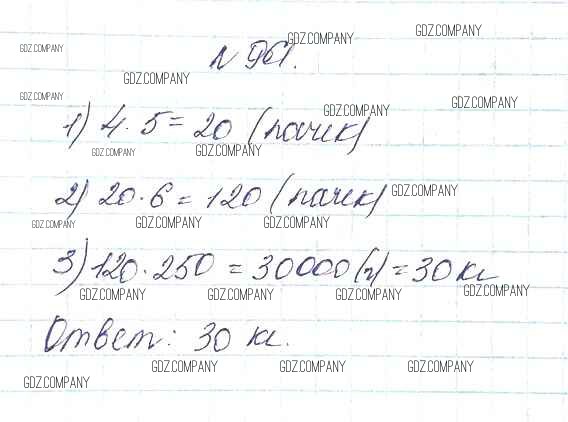 GDZ.COMPANY GDZ.COMPANY GDZ.COMPANY
N 961.
GDZ.COMPANY
GDZ.COMPANY GDZ.COMPANY GDZ.COMPANY
1) 4·5=20 (пачек)
GDZ.COMPANY GDZ.COMPANY
2) 20·6=120 (пачек) GDZ.COMPANY
GDZ.COMPANY GDZ.COMPANY GDZ.COMPANY
3) 120·250=30000(г)=30 кг
GDZ.COMPANY GDZ.COMPANY GDZ.COMPANY GDZ.COMPANY
Ответ: 30 кг.
GDZ.COMPANY GDZ.COMPANY GDZ.COMPANY
GDZ.COMPANY